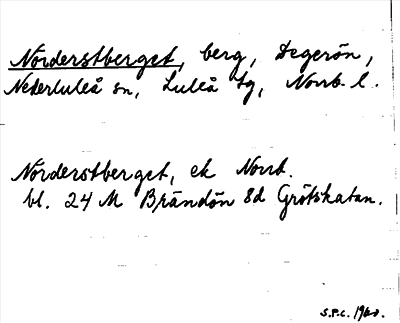 Norderstberget, berg, Degerön,
Nederluleå sn, Luleå tg, Norrb. l.
Norderstberget, ek Norrb.
bl. 24 M Brändön 8d Grötskatan.
S.P.C. 1960.